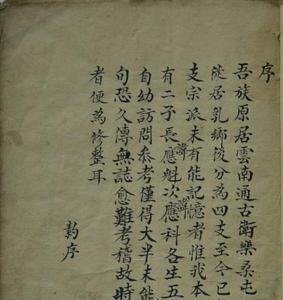 序
吾族原居雲南通古衛樂桑屯
徙居乳鄉後分為四支至今已
支宗派未有能記憶者惟我本
有二子長諱應魁次諱應科各生五
自幼訪問叅考僅得大半未能
句恐久傳無誌愈難考稽故時
者便為修整耳
序